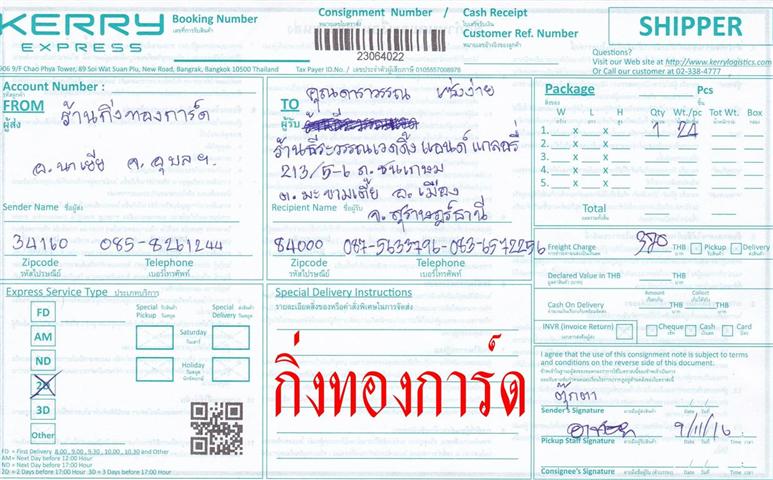 KERRY
EXPRESS
Booking Number
เลขที่การรับสินค้า
Consignment Number /
หมายเลขใบตราส่ง
23064022
Cash Receipt
ใบเสร็จรับเงิน
Customer Ref. Number
หมายเลขอ้างอิงของลูกค้า
SHIPPER
Questions?
Visit our Web site at http://www.kerrylogistics.com
Or Call our customer at 02-338-4777
906 9/F Chao Phya Tower, 89 Soi Wat Suan Plu, New Road, Bangrak, Bangkok 10500 Thailand
Tax Payer ID.No. / เลขประจำตัวผู้เสียภาษี 0105557008978
Account Number :
รหัสลูกค้า
FROM
ผู้ส่ง
ร้านกิ่งทองการ์ด
อ.นาเยีย จ.อุบลฯ
Sender Name ชื่อผู้ส่ง
34160 085-8261244
Zipcode
รหัสไปรษณีย์
Telephone
เบอร์โทรศัพท์
TO
ผู้รับ
คุณดาราวรรณ
ร้านธีระวรรณเวดดิ้ง แอนด์ แกลอรี่
213/5-6 ถ.ชนเกษม
ต.มะขามเตี้ย อ.เมือง
จ.สุราษฎร์ธานี
Recipient Name ชื่อผู้รับ
84000 087-5633796-083-6572256
Zipcode
รหัสไปรษณีย์
Telephone
เบอร์โทรศัพท์
Package Pcs
W L H Qty Wt./pc Tot Wt. Box
1. x x 1 24
2. x x
3. x x
4. x x
5. x x
Total
Freight Charge 380 THB Pickup Delivery
Declared Value in THB THB
Amount Collect
Cash On Delivery THB
INVR (Invoice Return) Cheque Cash Card
I agree that the use of this consignment note is subject to terms
and conditions on the reverse side of this document.
ตุ๊กตา
Sender's Signature ลายมือชื่อผู้ส่ง Date วันที่
9/11/16
Pickup Staff Signature Date วันที่ Time เวลา
Consignee's Signature Date วันที่ Time เวลา
Express Service Type ประเภทบริการ
FD
AM
ND
2D
3D
Other
Special Pickup รับสินค้าวันหยุด
Special Delivery ส่งสินค้าวันหยุด
Saturday
วันเสาร์
Holiday
วันหยุดนักขัตฤกษ์
FD = First Delivery 8.00 , 9.00 , 9.30 , 10.00 , 10.30 and Other
AM = Next Day before 12:00 Hour
ND = Next Day before 17:00 Hour
2D = 2 Days before 17:00 Hour 3D = 3 Days before 17:00 Hour
Special Delivery Instructions
รายละเอียดสิ่งของหรือคำสั่งพิเศษในการจัดส่ง
กิ่งทองการ์ด